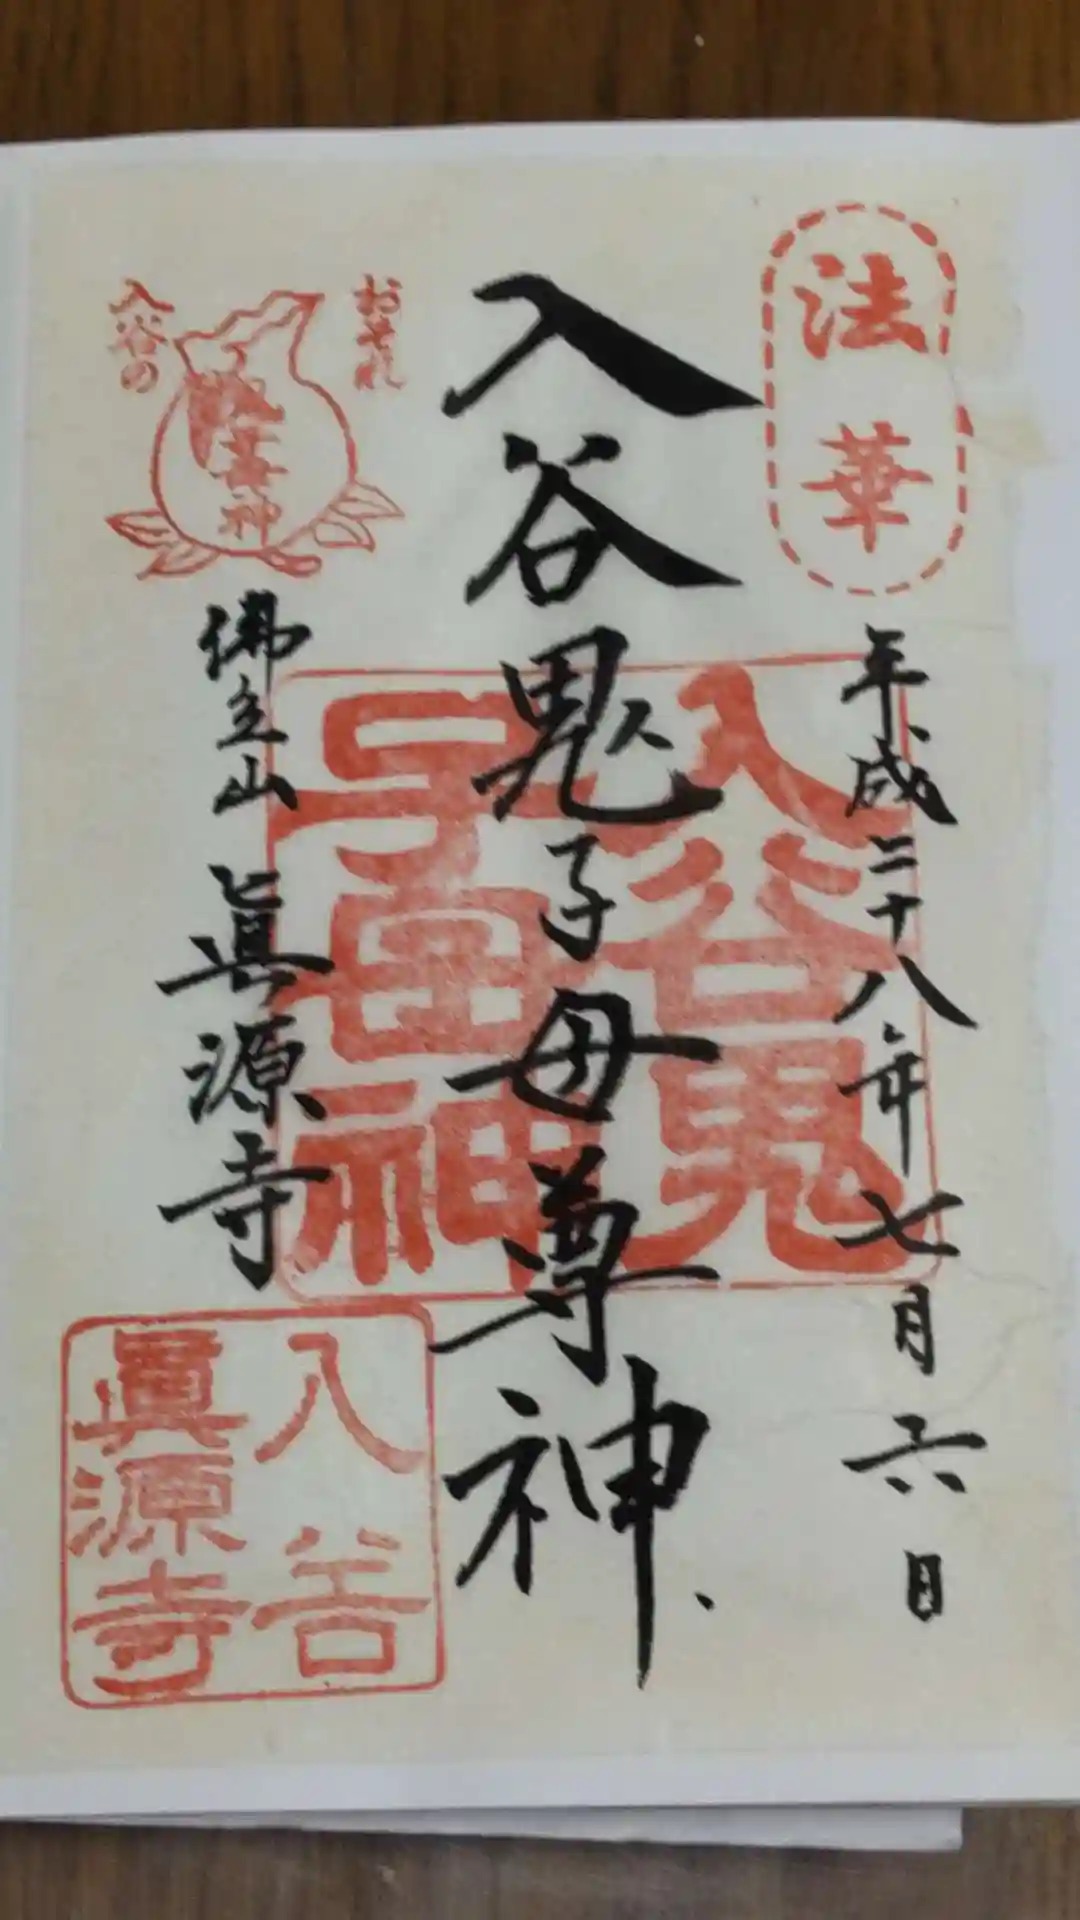 法華
平成二十八年七月六日
入谷鬼子母尊神
入谷鬼
子母神
おそれ
入谷の
鬼子母神
佛立山 眞源寺
入谷
眞源寺